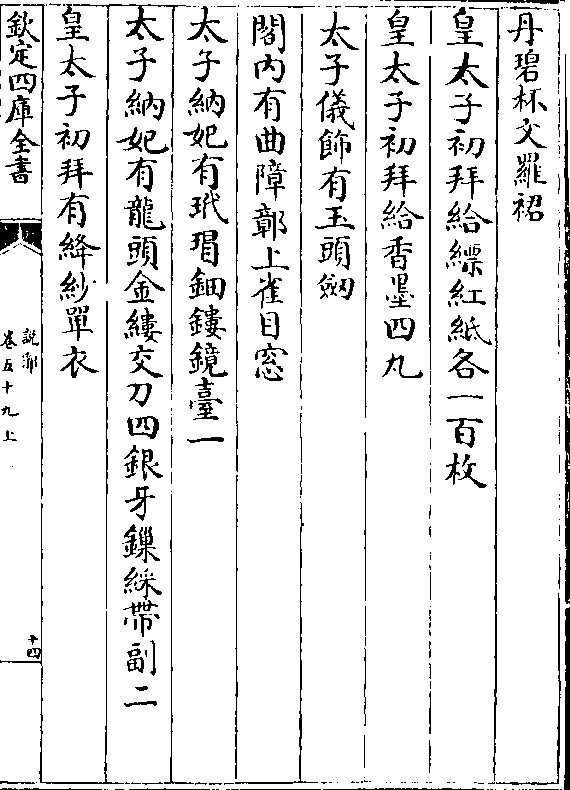 丹碧杯文羅裙
皇太子初拜給縹紅紙各一百枚
皇太子初拜給香墨四丸
太子儀飾有玉頭劒
閣内有曲障鄣上雀目窓
太子納妃有玳瑁鈿鏤鏡臺一
太子納妃有龍頭金縷交刀四銀牙鏁綵帶副二
皇太子初拜有絳紗單衣
欽定四庫全書
說郛
卷五十九上
十四